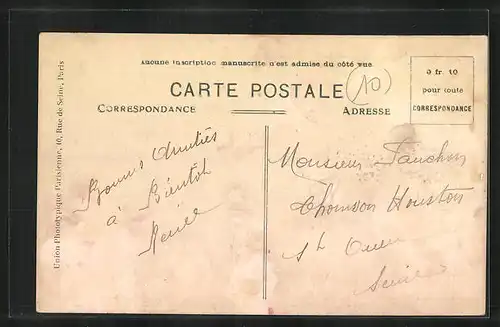 Aucune inscription manuscrite n'est admise du côté vue
CARTE POSTALE
10
0 fr. 10
pour toute
CORRESPONDANCE
CORRESPONDANCE
ADRESSE
Union Phonotypique Parisienne, 40, Rue de Seine, Paris
Bonnes Amitiés
à Bientôt
Monsieur
Thomson Houston
St Ouen
Seine